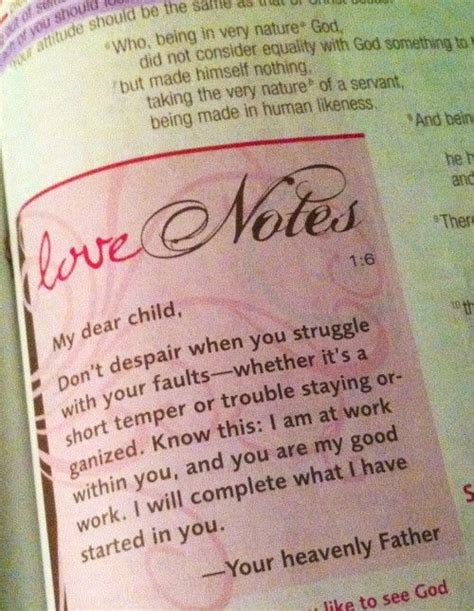 of you should look
your attitude should be the same as that of Christ Jesus:
⁶Who, being in very nature* God,
did not consider equality with God something to
⁷but made himself nothing,
taking the very nature* of a servant,
being made in human likeness.
⁸And being
he
and
⁹There
¹⁰th
love Notes
1:6
My dear child,
Don't despair when you struggle
with your faults—whether it's a
short temper or trouble staying or-
ganized. Know this: I am at work
within you, and you are my good
work. I will complete what I have
started in you.
—Your heavenly Father
S
you like to see God